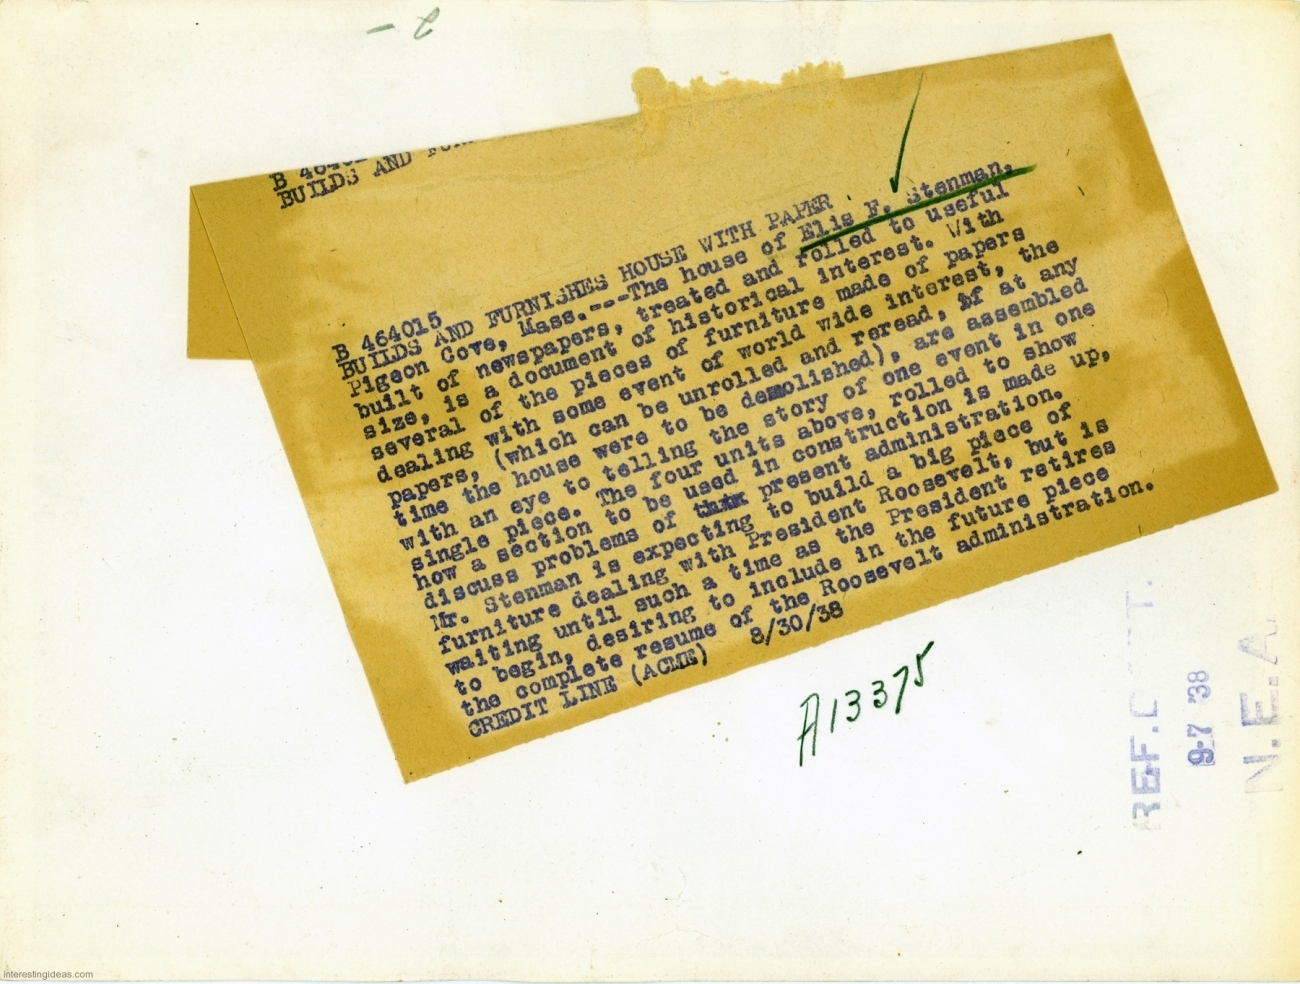 B 464
BUILDS AND
B 464015
BUILDS AND FURNISHES HOUSE WITH PAPER
Pigeon Cove, Mass.---The house of Elis F. Stenman,
built of newspapers, treated and rolled to useful
size, is a document of historical interest. With
several of the pieces of furniture made of papers
dealing with some event of world wide interest, the
papers, (which can be unrolled and reread, if at any
time the house were to be demolished), are assembled
with an eye to telling the story of one event in one
single piece. The four units above, rolled to show
how a section to be used in construction is made up,
discuss problems of present administration.
Mr. Stenman is expecting to build a big piece of
furniture dealing with President Roosevelt, but is
waiting until such a time as the President retires
to begin, desiring to include in the future piece
the complete resume of the Roosevelt administration.
CREDIT LINE (ACME) 8/30/38
A13375
9-7 '38
N.E.A.
interestingideas.com